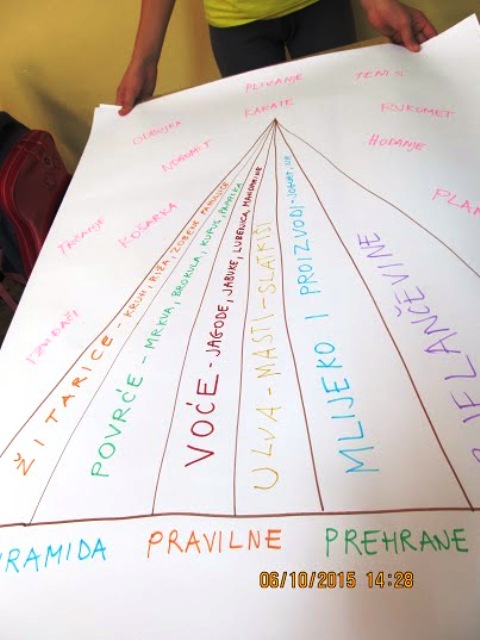 PLIVANJE
TENIS
KARATE
RUKOMET
ODBOJKA
HODANJE
NOGOMET
KOŠARKA
TRČANJE
PLAN
ŽITARICE - KRUH, RIŽA, ZOBENE PAHULJICE
POVRĆE - MRKVA, BROKULA, KUPUS, PAPRIKA
VOĆE - JAGODE, JABUKE, LUBENICA, MANDARINE
ULVA - MASTI - SLATKIŠI
MLIJEKO I PROIZVODI - JOGURT, SIR
BJELANČEVINE
IRAMIDA PRAVILNE PREHRANE
06/10/2015 14:28